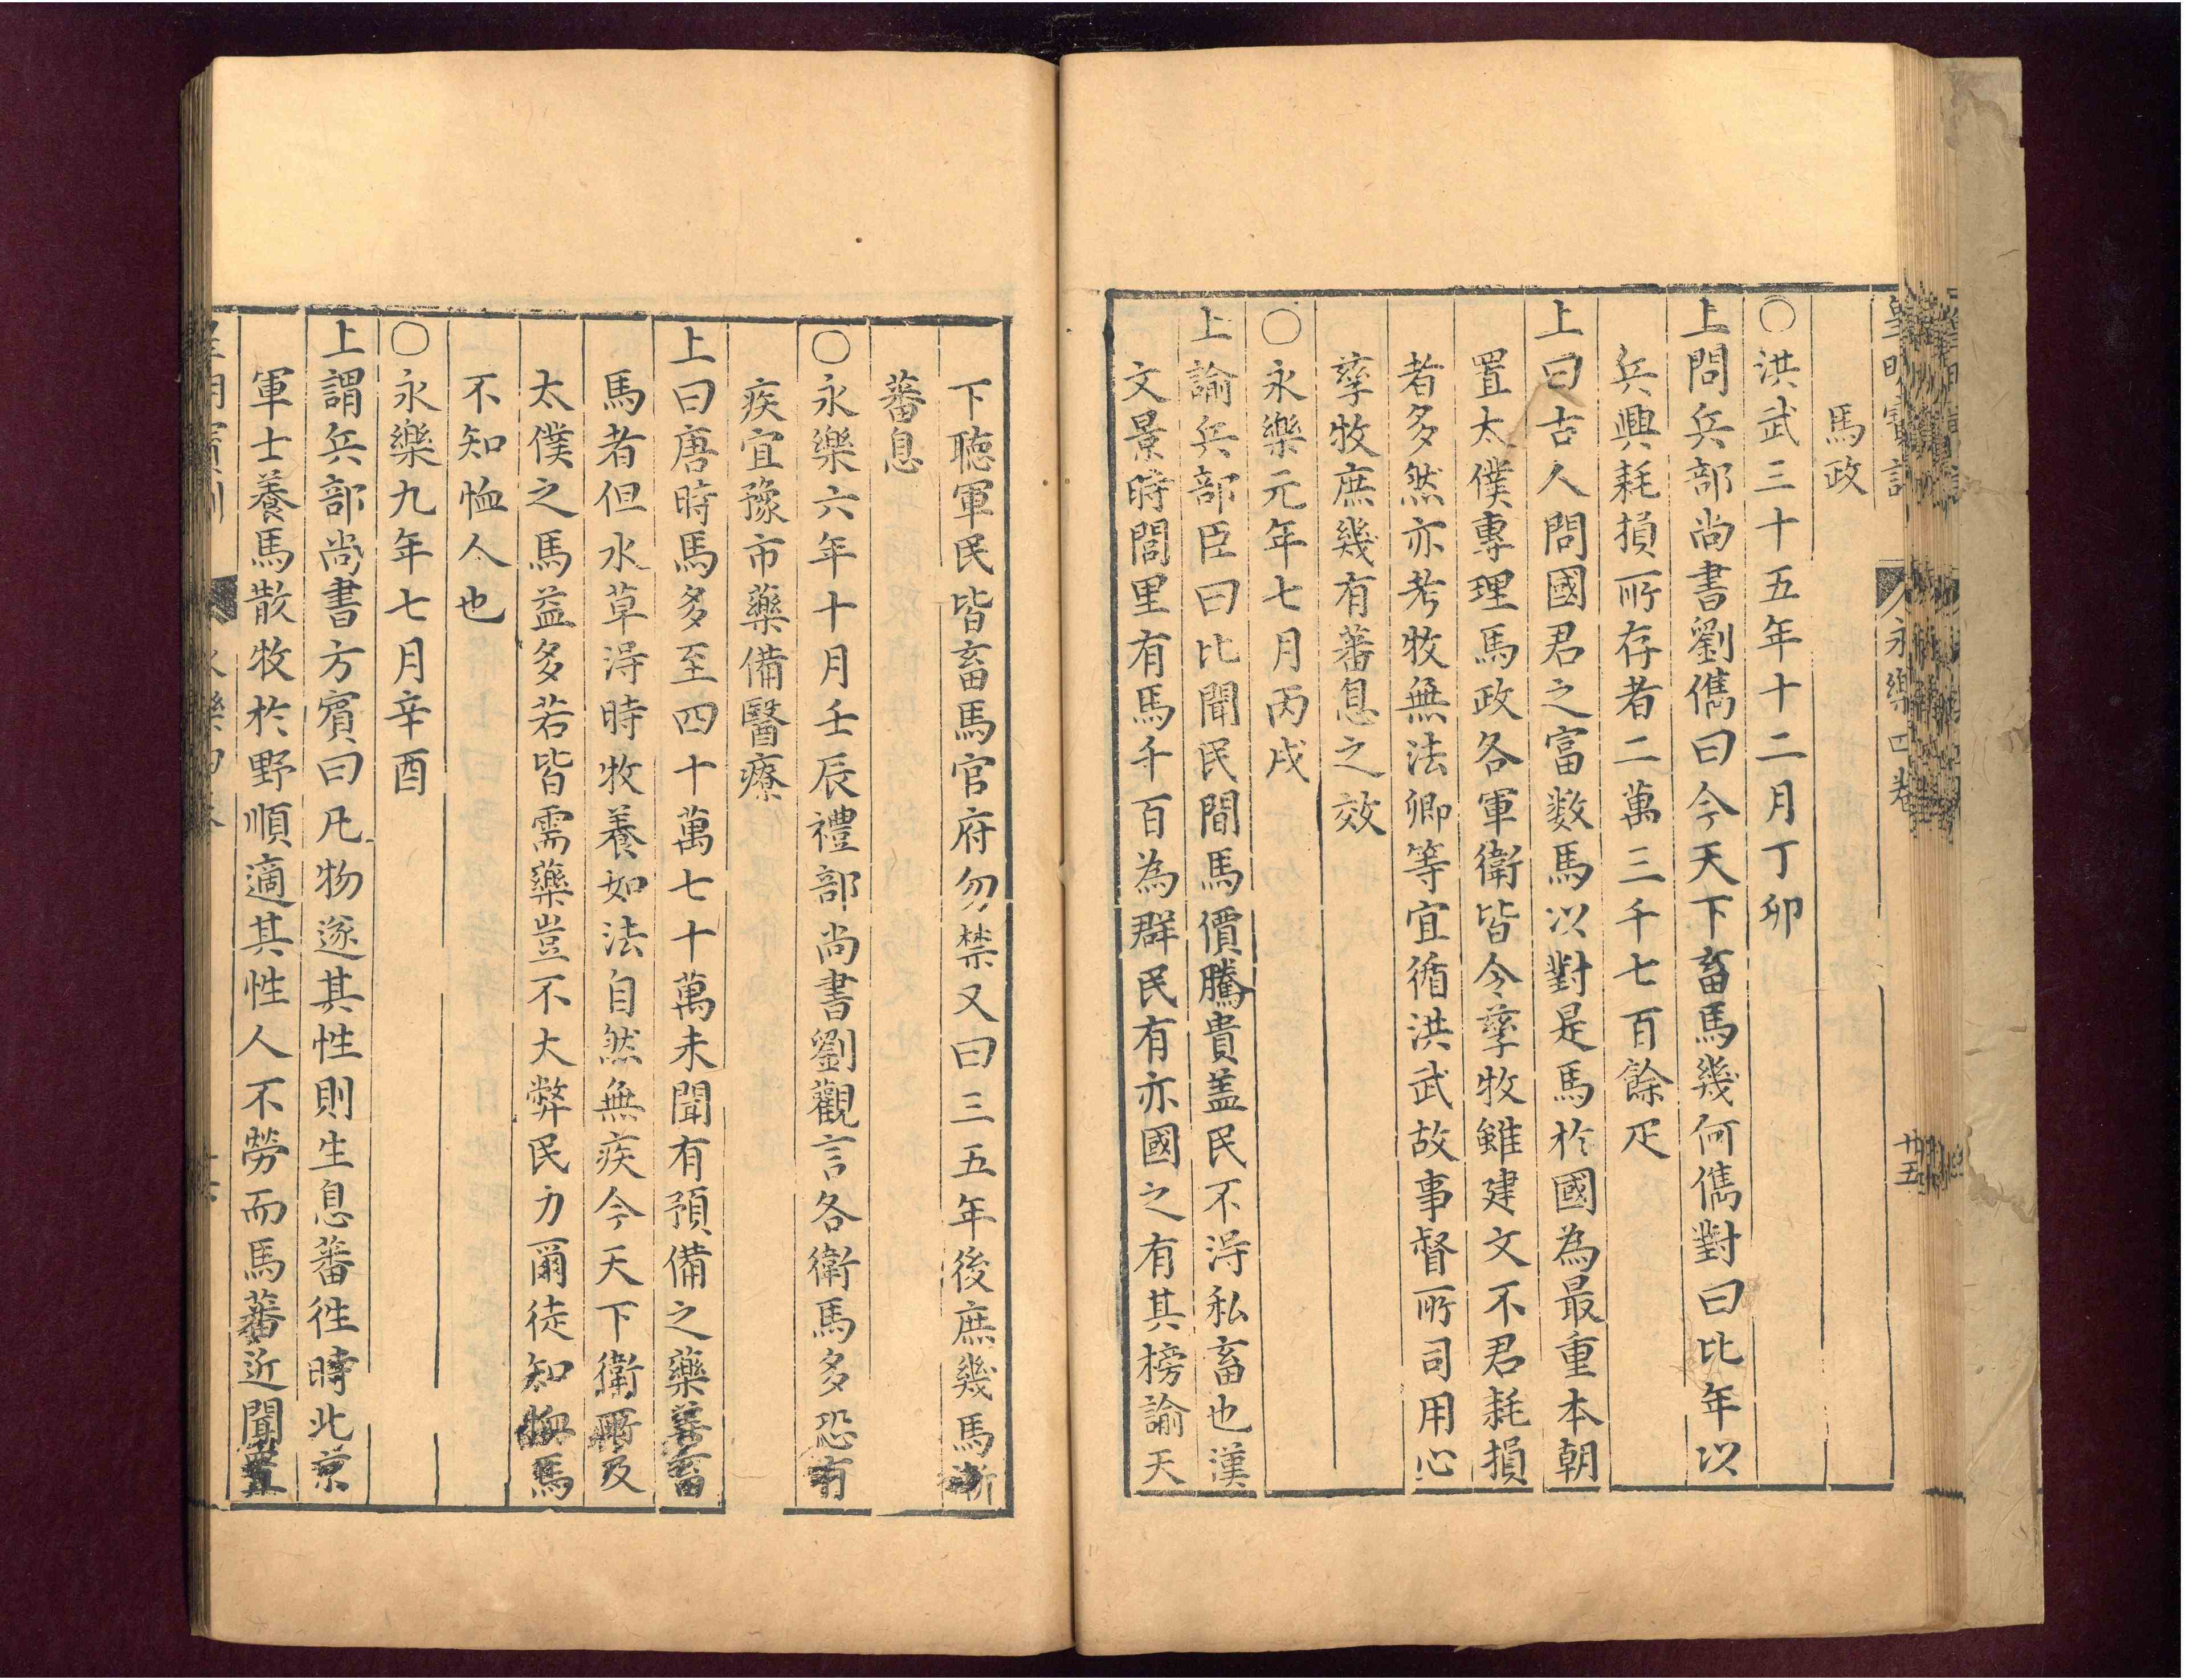 皇明寶訓 永樂四卷 廿五
馬政
○洪武三十五年十二月丁卯
上問兵部尚書劉儁曰今天下畜馬幾何儁對曰比年以
兵興耗損所存者二萬三千七百餘疋
上曰古人問國君之富数馬以對是馬於國為最重本朝
置太僕專理馬政各軍衛皆令孳牧雖建文不君耗損
者多然亦考牧無法卿等宜循洪武故事督所司用心
孳牧庶幾有蕃息之效
○永樂元年七月丙戌
上諭兵部臣曰比聞民間馬價騰貴盖民不得私畜也漢
文景時閭里有馬千百為群民有亦國之有其榜諭天
下聽軍民皆畜馬官府勿禁又曰三五年後庶幾馬漸
蕃息
○永樂六年十月壬辰禮部尚書劉觀言各衛馬多恐有
疾宜豫市藥備醫療
上曰唐時馬多至四十萬七十萬未聞有預備之藥善畜
馬者但水草得時牧養如法自然無疾今天下衛所及
太僕之馬益多若皆需藥豈不大弊民力爾徒知恤馬
不知恤人也
○永樂九年七月辛酉
上謂兵部尚書方賓曰凡物遂其性則生息蕃徃時北京
軍士養馬散牧於野順適其性人不勞而馬蕃近聞置